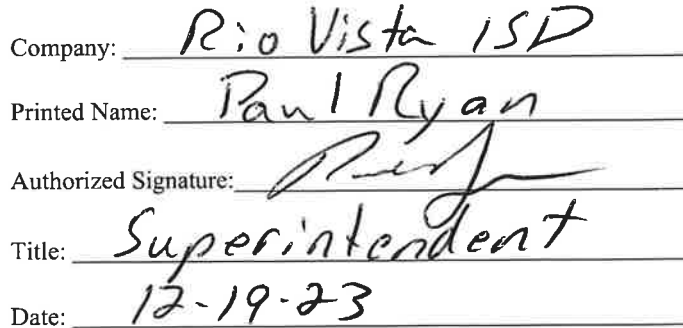 Company: Rio Vista ISD
Printed Name: Paul Ryan
Authorized Signature:
Title: Superintendent
Date: 12-19-23